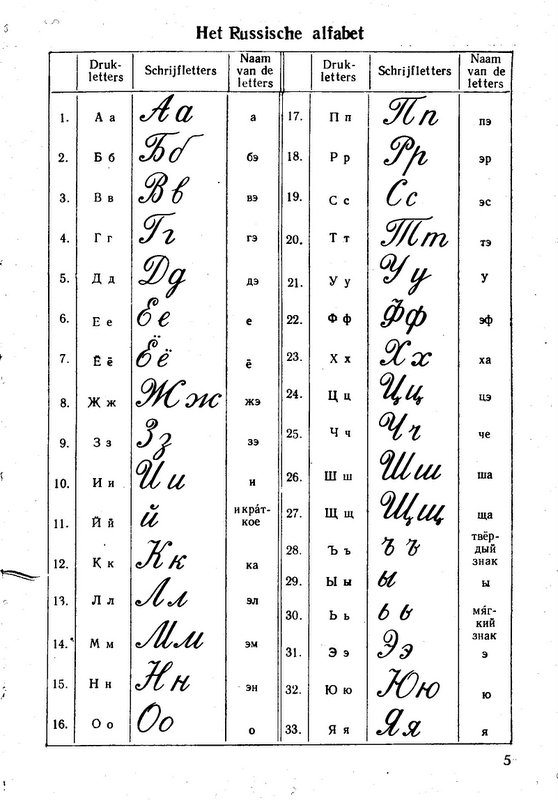 Het Russische alfabet
Druk-letters Schrijfletters Naam van de letters Druk-letters Schrijfletters Naam van de letters
1. А а Аа а 17. П п Пп пэ
2. Б б Бб бэ 18. Р р Рр эр
3. В в Вв вэ 19. С с Сс эс
4. Г г Гг гэ 20. Т т Тт тэ
5. Д д Дд дэ 21. У у Уу у
6. Е е Ее е 22. Ф ф Фф эф
7. Ё ё Ёё ё 23. Х х Хх ха
8. Ж ж Жж жэ 24. Ц ц Цц цэ
9. З з Зз зэ 25. Ч ч Чч че
10. И и Ии и 26. Ш ш Шш ша
11. Й й й и кра́т-кое 27. Щ щ Щщ ща
12. К к Кк ка 28. Ъ ъ Ъ ъ твёр-дый знак
13. Л л Лл эл 29. Ы ы ы ы
14. М м Мм эм 30. Ь ь ь ь мя́г-кий знак
15. Н н Нн эн 31. Э э Ээ э
16. О о Оо о 32. Ю ю Юю ю
33. Я я Яя я
5